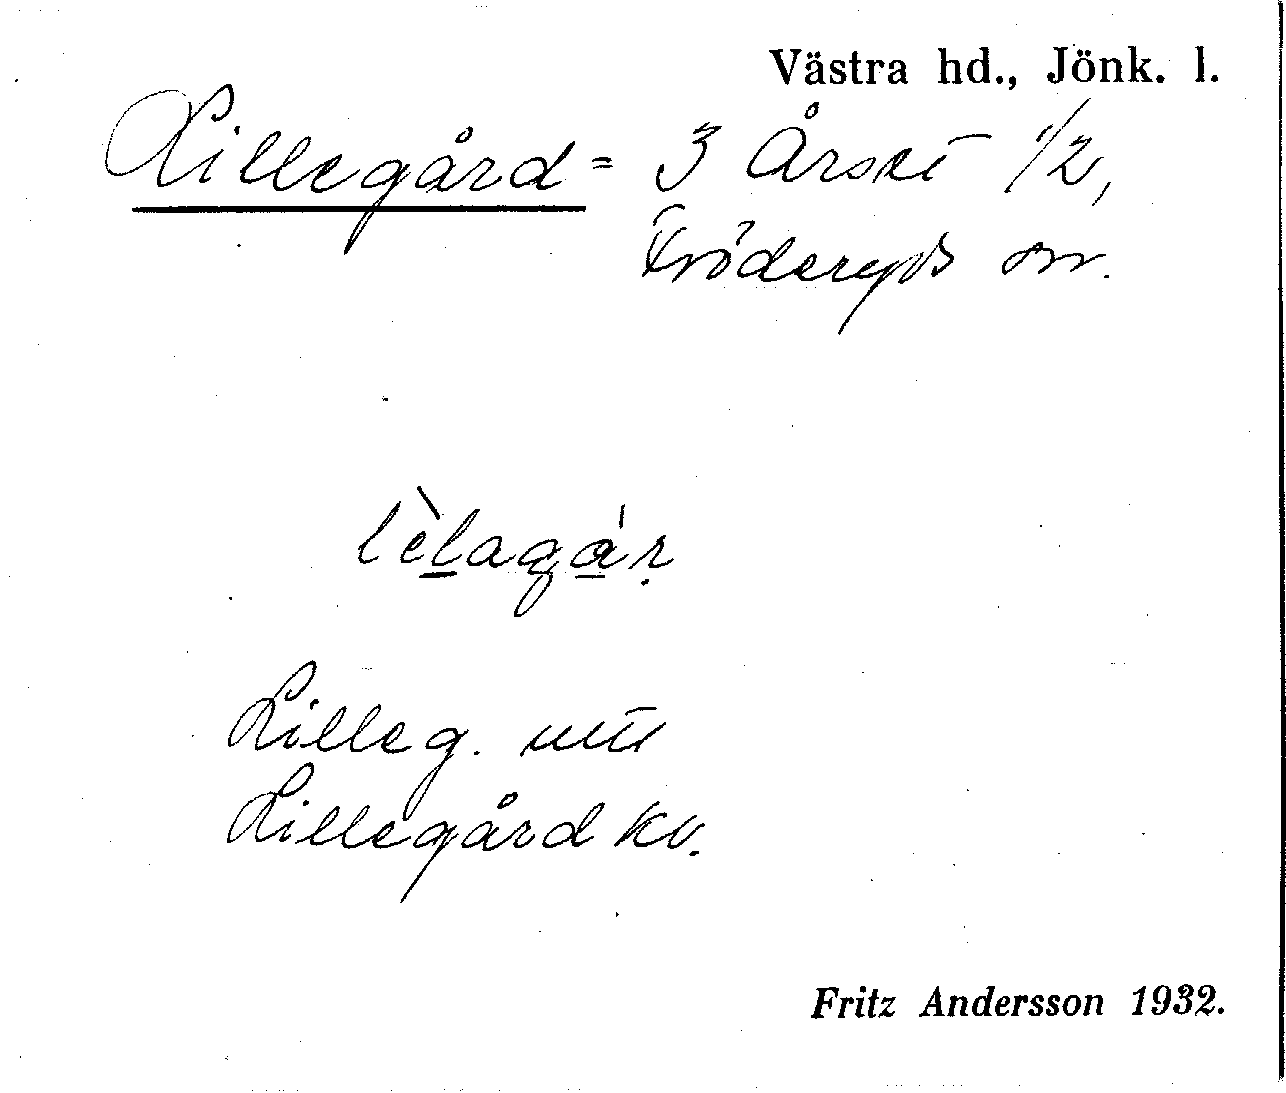 Västra hd., Jönk. l.
Lillegård = 3 Årset 1/2,
Fröderyds sn.
lèlagár
Lilleg.
Lillegård kv.
Fritz Andersson 1932.